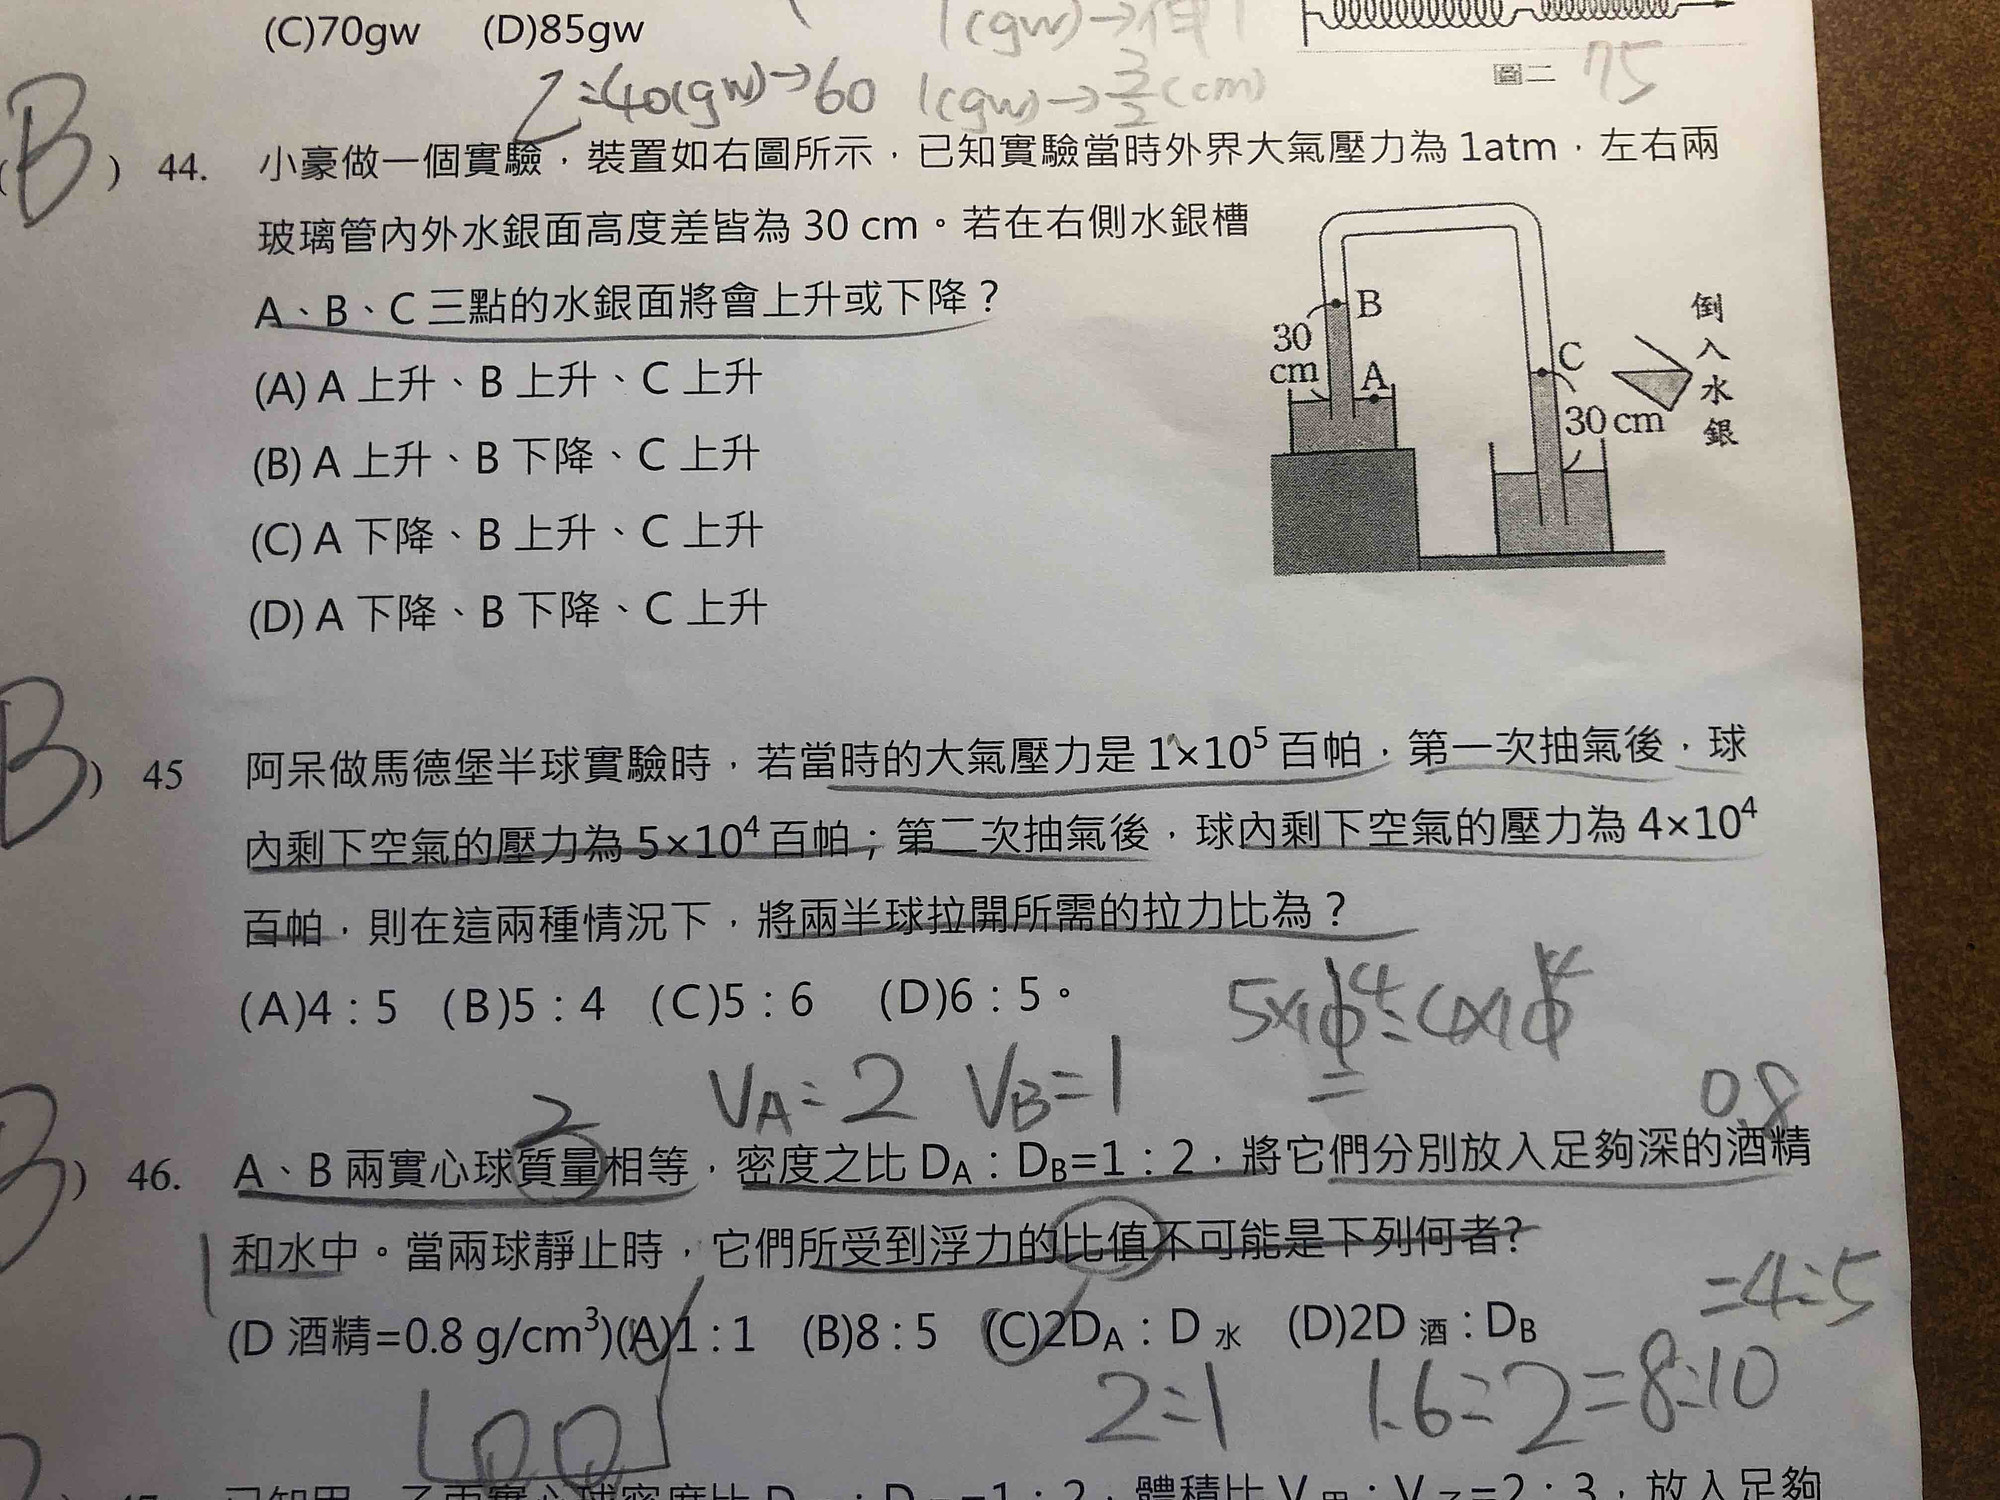 (C)70gw (D)85gw
1(gw)→伸1
圖二 75
Z=40(gw)→60 1(gw)→3/2(cm)
(B) 44. 小豪做一個實驗，裝置如右圖所示，已知實驗當時外界大氣壓力為 1atm，左右兩
玻璃管內外水銀面高度差皆為 30 cm。若在右側水銀槽
A、B、C 三點的水銀面將會上升或下降？
(A) A 上升、B 上升、C 上升
(B) A 上升、B 下降、C 上升
(C) A 下降、B 上升、C 上升
(D) A 下降、B 下降、C 上升
B
30
cm
A
C
30 cm
倒入水銀
B) 45 阿呆做馬德堡半球實驗時，若當時的大氣壓力是 1×10⁵ 百帕，第一次抽氣後，球
內剩下空氣的壓力為 5×10⁴ 百帕；第二次抽氣後，球內剩下空氣的壓力為 4×10⁴
百帕，則在這兩種情況下，將兩半球拉開所需的拉力比為？
(A)4：5 (B)5：4 (C)5：6 (D)6：5。
5×10⁴:4×10⁴
=
VA=2 VB=1
2
0.8
B) 46. A、B 兩實心球質量相等，密度之比 DA：DB=1：2，將它們分別放入足夠深的酒精
1 和水中。當兩球靜止時，它們所受到浮力的比值不可能是下列何者?
=4:5
(D 酒精=0.8 g/cm³)(A)1：1 (B)8：5 (C)2DA：D 水 (D)2D 酒：DB
2:1 1.6:2=8:10
47. 已知甲、乙兩實心球密度比 D甲：D乙=1：2，體積比 V甲：V乙=2：3，放入足夠